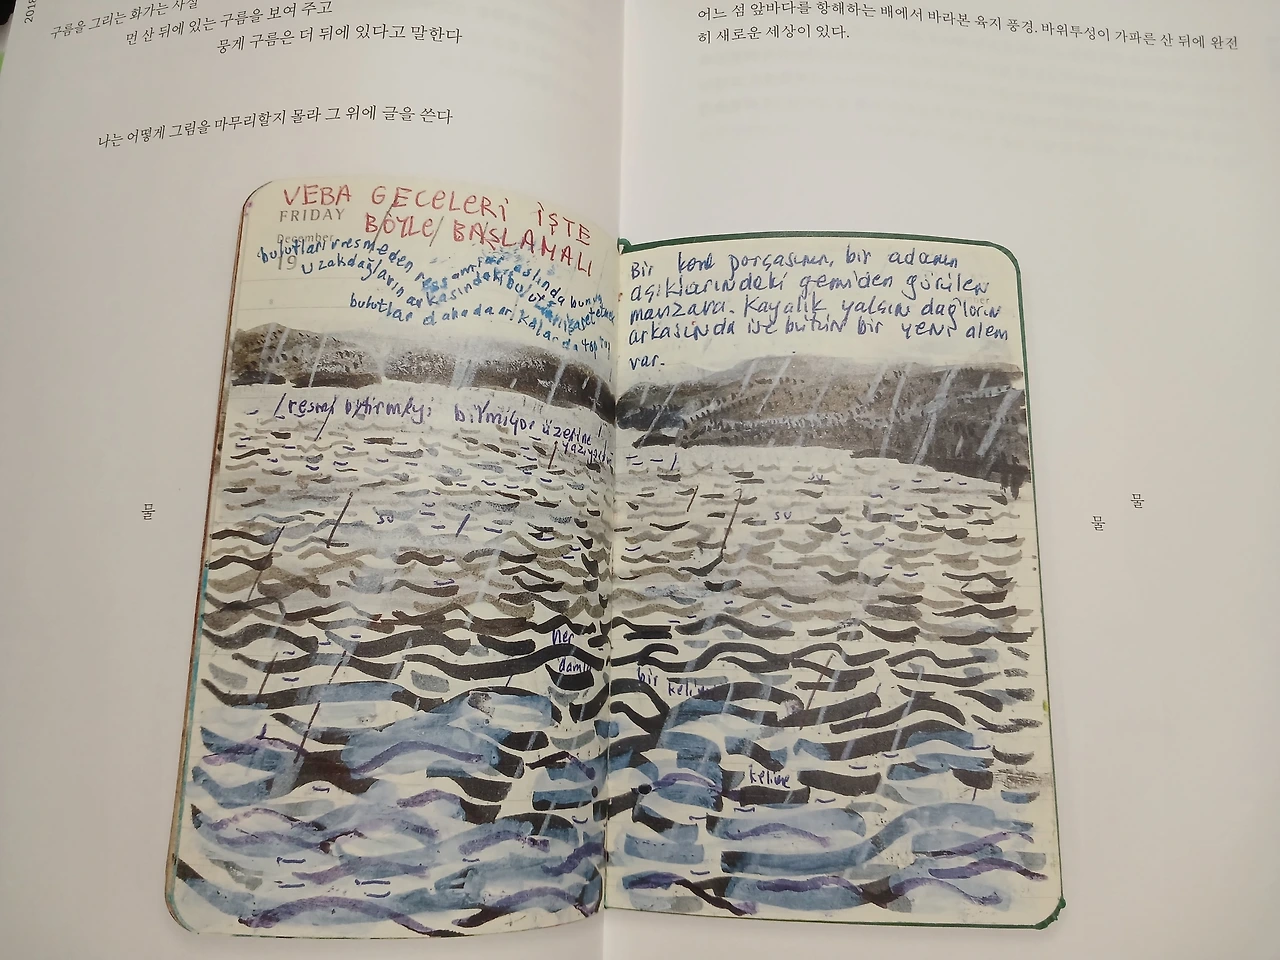 2018
구름을 그리는 화가는 사실
먼 산 뒤에 있는 구름을 보여 주고
뭉게 구름은 더 뒤에 있다고 말한다
나는 어떻게 그림을 마무리할지 몰라 그 위에 글을 쓴다
어느 섬 앞바다를 항해하는 배에서 바라본 육지 풍경. 바위투성이 가파른 산 뒤에 완전
히 새로운 세상이 있다.
VEBA GECELERİ İŞTE
FRIDAY
BÖYLE BAŞLAMALI
December
19
bulutları resmeden ressamlar aslında
uzak dağların arkasındaki bulut
bulutlar daha da arkalarda
resmi bitirmeyi bilmiyor üzerine
Bir kara parçasının, bir adanın
açıklarındaki gemiden görülen
manzara. Kayalık yalçın dağların
arkasında ise bütün bir yeni alem
var.
su
su
su
물
물
물
her
damla
bir kelime
kelime